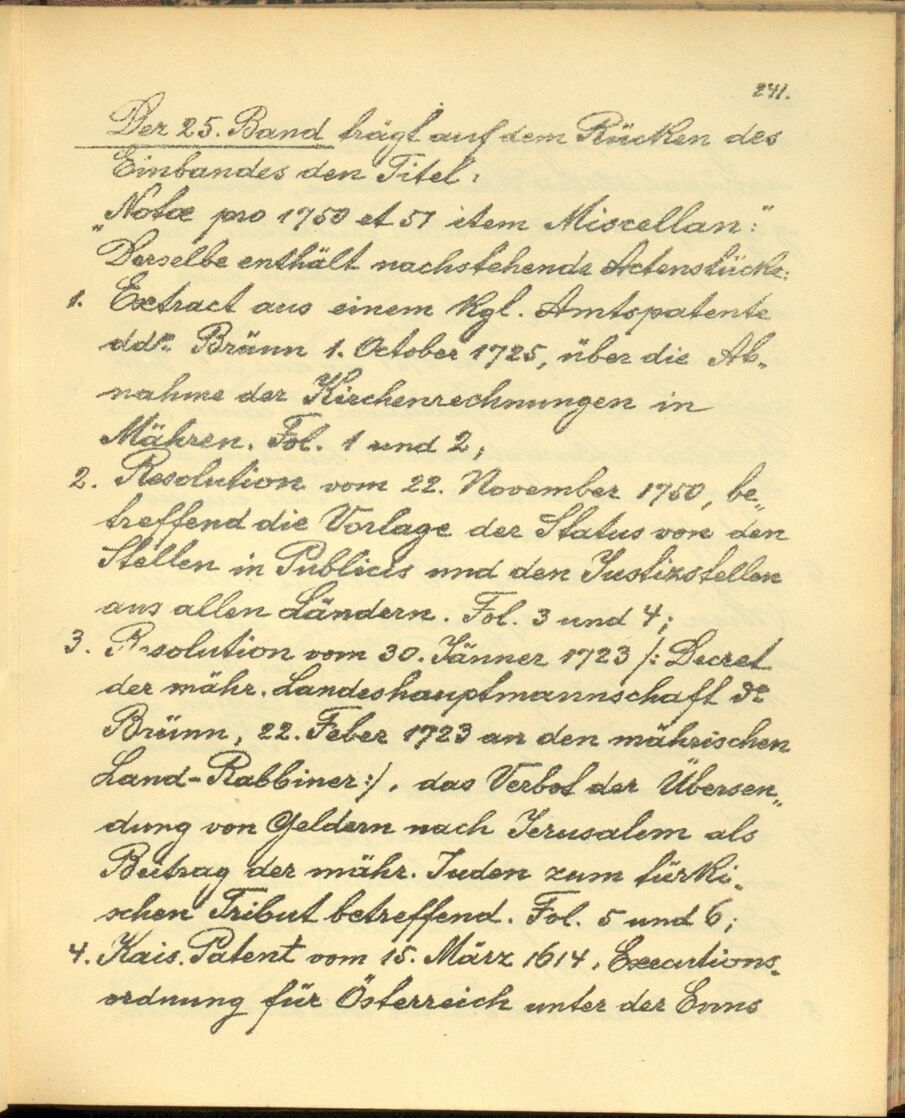 241.
Der 25. Band trägt auf dem Rücken des
Einbandes den Titel:
„Notæ pro 1750 et 51 item Miscellan:"
Derselbe enthält nachstehende Actenstücke:
1. Extract aus einem kgl. Amtspatente
ddº Brünn 1. October 1725, über die Ab„
nahme der Kirchenrechnungen in
Mähren. Fol. 1 und 2;
2. Resolution vom 22. November 1750, be„
treffend die Vorlage der Status von den
Stellen in Publicis und den Justizstellen
aus allen Ländern. Fol. 3 und 4;
3. Resolution vom 30. Jänner 1723 /: Decret
der mähr. Landeshauptmannschaft dº
Brünn, 22. Feber 1723 an den mährischen
Land-Rabbiner:/, das Verbot der Übersen„
dung von Geldern nach Jerusalem als
Beitrag der mähr. Juden zum türki„
schen Tribut betreffend. Fol. 5 und 6;
4. Kais. Patent vom 15. März 1614, Executions„
ordnung für Österreich unter der Enns